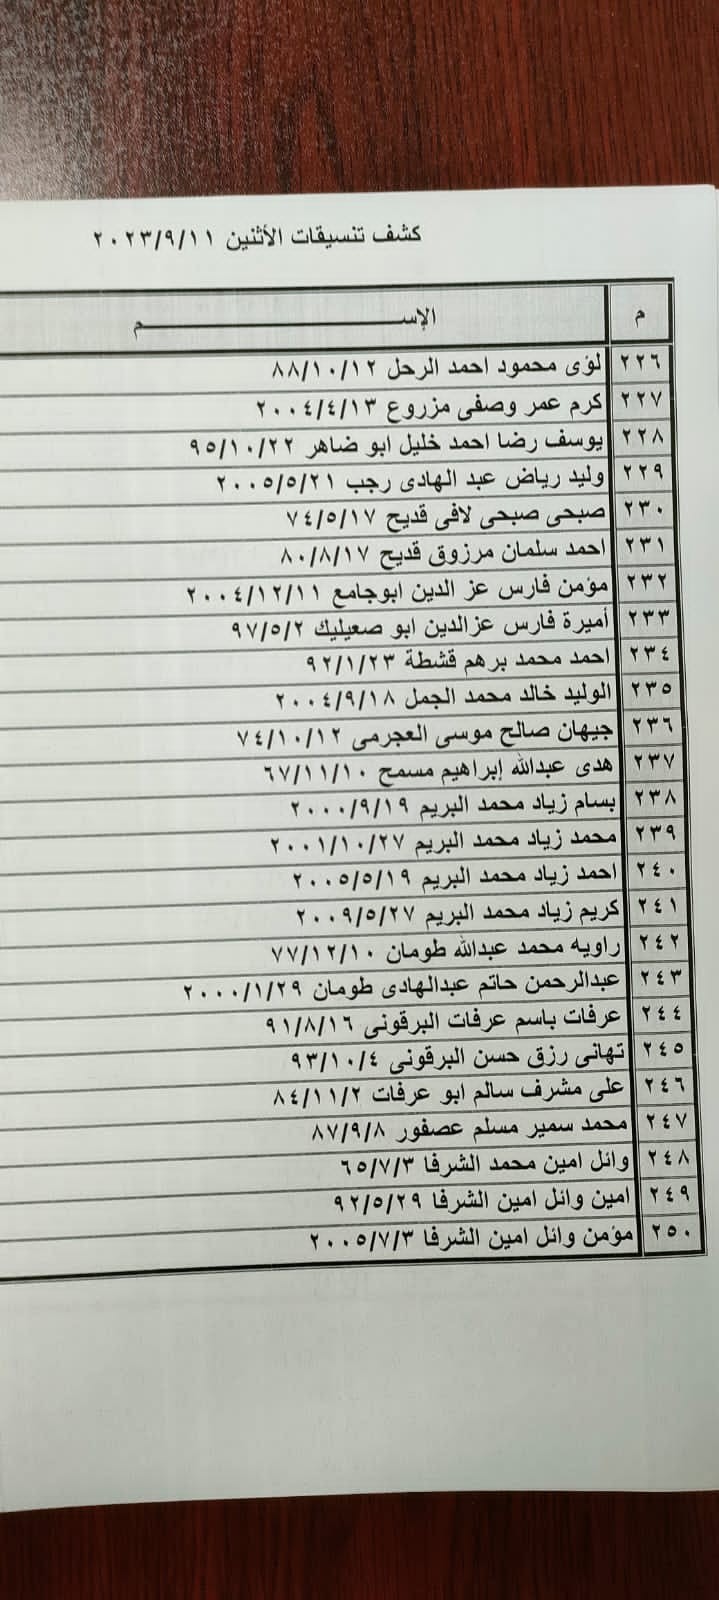 كشف تنسيقات الأثنين ٢٠٢٣/٩/١١
م الإســـــــــــــــــــم
٢٢٦ لؤى محمود احمد الرحل ٨٨/١٠/١٢
٢٢٧ كرم عمر وصفى مزروع ٢٠٠٤/٤/١٣
٢٢٨ يوسف رضا احمد خليل ابو ضاهر ٩٥/١٠/٢٢
٢٢٩ وليد رياض عبد الهادى رجب ٢٠٠٥/٥/٢١
٢٣٠ صبحى صبحى لافى قديح ٧٤/٥/١٧
٢٣١ احمد سلمان مرزوق قديح ٨٠/٨/١٧
٢٣٢ مؤمن فارس عز الدين ابوجامع ٢٠٠٤/١٢/١١
٢٣٣ أميرة فارس عزالدين ابو صعيليك ٩٧/٥/٢
٢٣٤ احمد محمد برهم قشطة ٩٢/١/٢٣
٢٣٥ الوليد خالد محمد الجمل ٢٠٠٤/٩/١٨
٢٣٦ جيهان صالح موسى العجرمى ٧٤/١٠/١٢
٢٣٧ هدى عبدالله إبراهيم مسمح ٦٧/١١/١٠
٢٣٨ بسام زياد محمد البريم ٢٠٠٠/٩/١٩
٢٣٩ محمد زياد محمد البريم ٢٠٠١/١٠/٢٧
٢٤٠ احمد زياد محمد البريم ٢٠٠٥/٥/١٩
٢٤١ كريم زياد محمد البريم ٢٠٠٩/٥/٢٧
٢٤٢ راويه محمد عبدالله طومان ٧٧/١٢/١٠
٢٤٣ عبدالرحمن حاتم عبدالهادى طومان ٢٠٠٠/١/٢٩
٢٤٤ عرفات باسم عرفات البرقونى ٩١/٨/١٦
٢٤٥ تهانى رزق حسن البرقونى ٩٣/١٠/٤
٢٤٦ على مشرف سالم ابو عرفات ٨٤/١١/٢
٢٤٧ محمد سمير مسلم عصفور ٨٧/٩/٨
٢٤٨ وائل امين محمد الشرفا ٦٥/٧/٣
٢٤٩ امين وائل امين الشرفا ٩٢/٥/٢٩
٢٥٠ مؤمن وائل امين الشرفا ٢٠٠٥/٧/٣